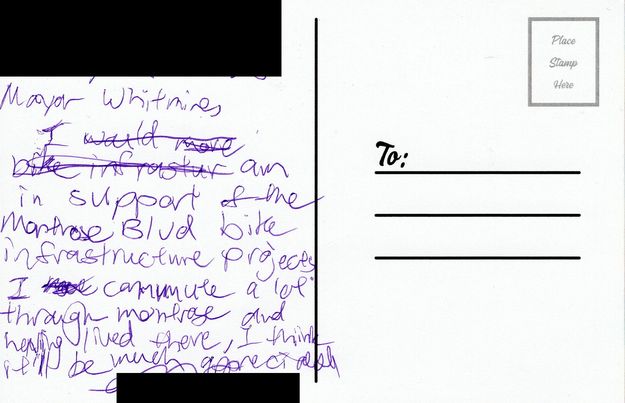 Mayor Whitmire,
I would more
bike infrastur am
in support of the
Montrose Blvd bike
infrastructure projects
I commute a lot
through montrose and
having lived there, I think
it'll be much appreciated
Place
Stamp
Here
To: